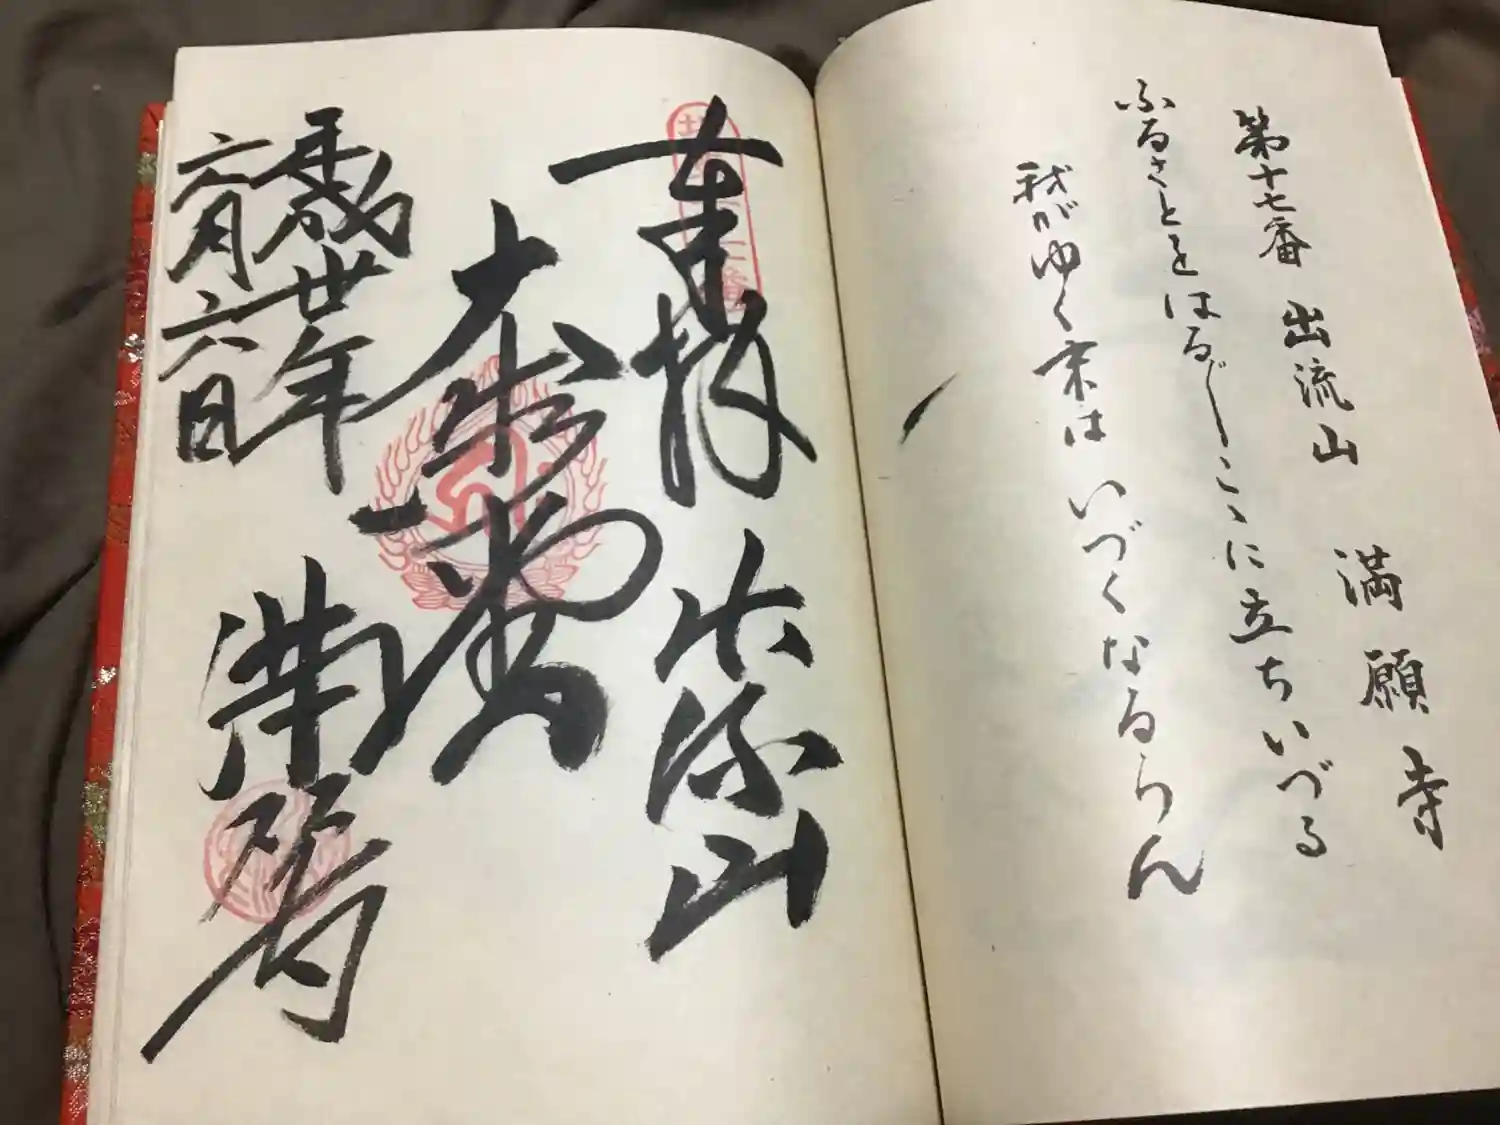 第十七番 出流山 満願寺
ふるさとをはる〴〵こゝに立ちいづる
我がゆく末はいづくなるらん
奉拝 出流山
平成丗年
六月六日
満願寺